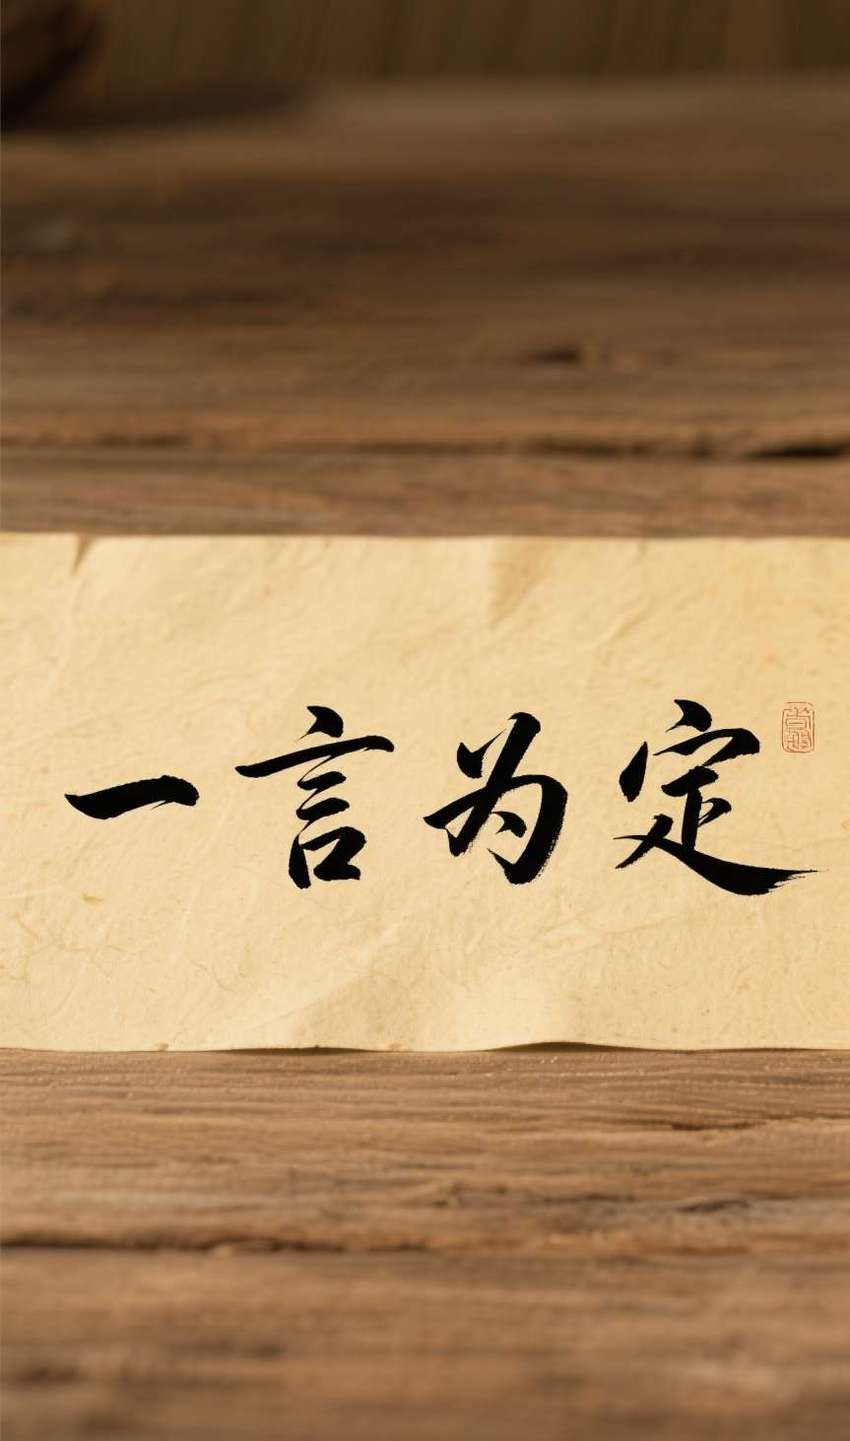 一言为定